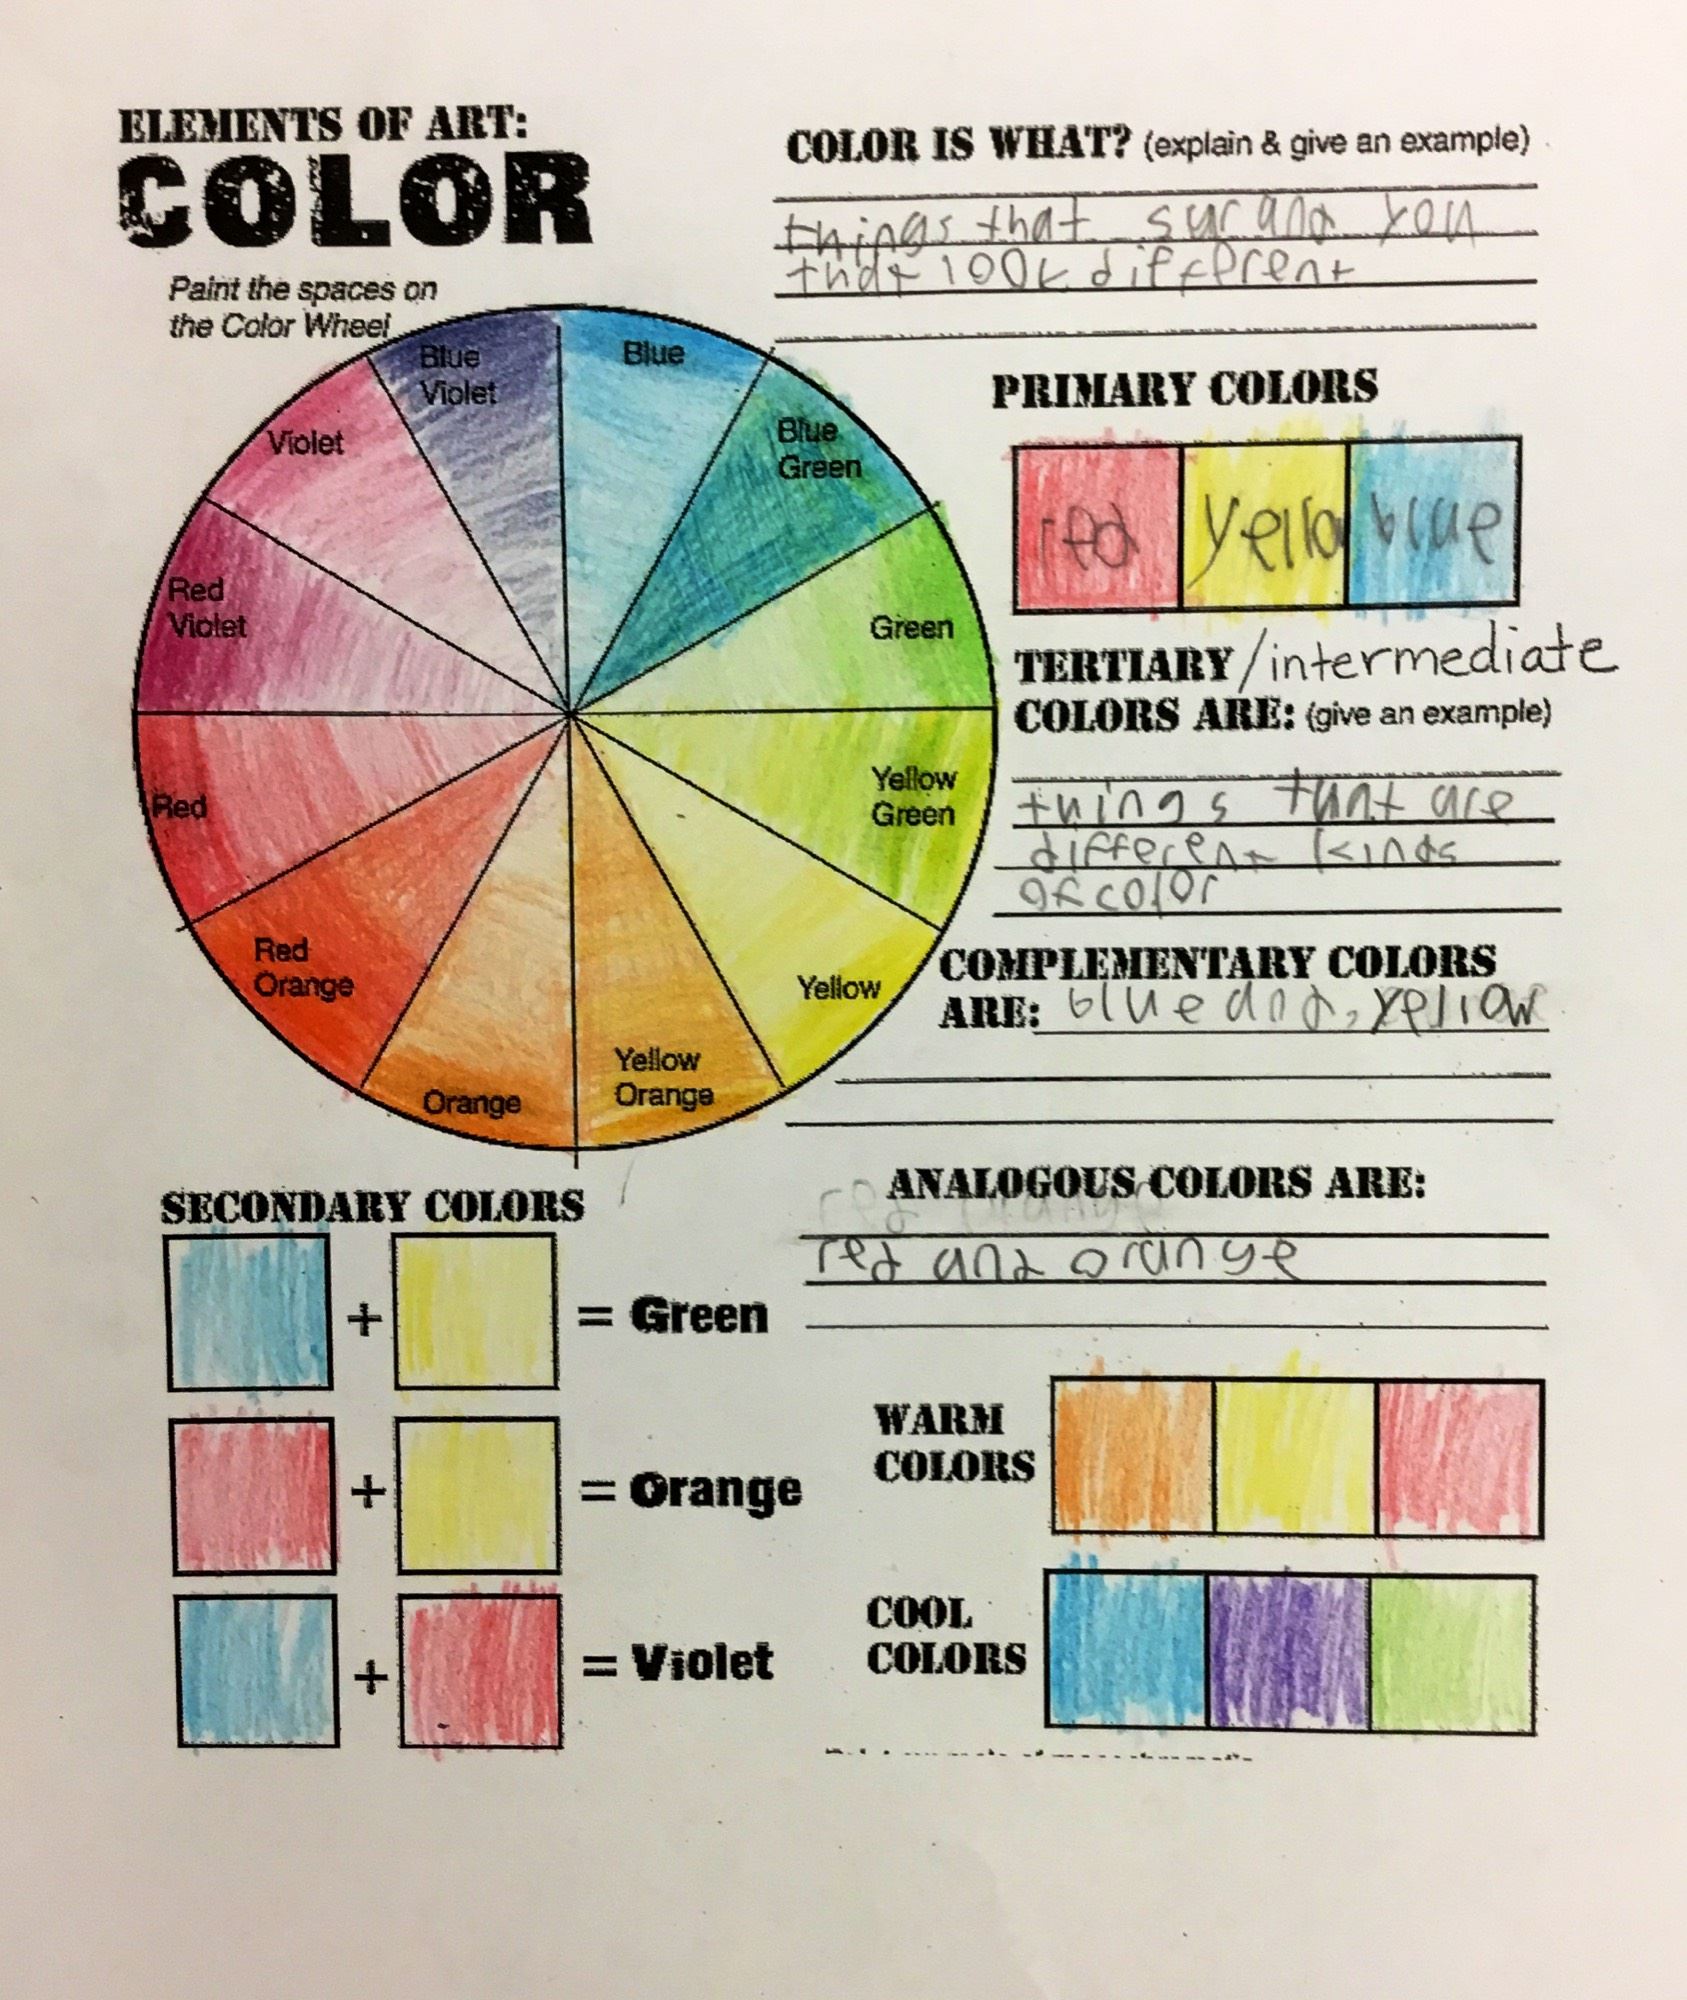 ELEMENTS OF ART:
COLOR
Paint the spaces on
the Color Wheel
COLOR IS WHAT? (explain & give an example)
things that surand you
that look different
Blue
Violet
Blue
Blue
Green
Green
Yellow
Green
Yellow
Yellow
Orange
Orange
Red
Orange
Red
Red
Violet
Violet
PRIMARY COLORS
red yello blue
TERTIARY/intermediate
COLORS ARE: (give an example)
things that are
different kinds
of color
COMPLEMENTARY COLORS
ARE: blue and, yellow
ANALOGOUS COLORS ARE:
red orange
red and orange
SECONDARY COLORS
+ = Green
+ = Orange
+ = Violet
WARM
COLORS
COOL
COLORS